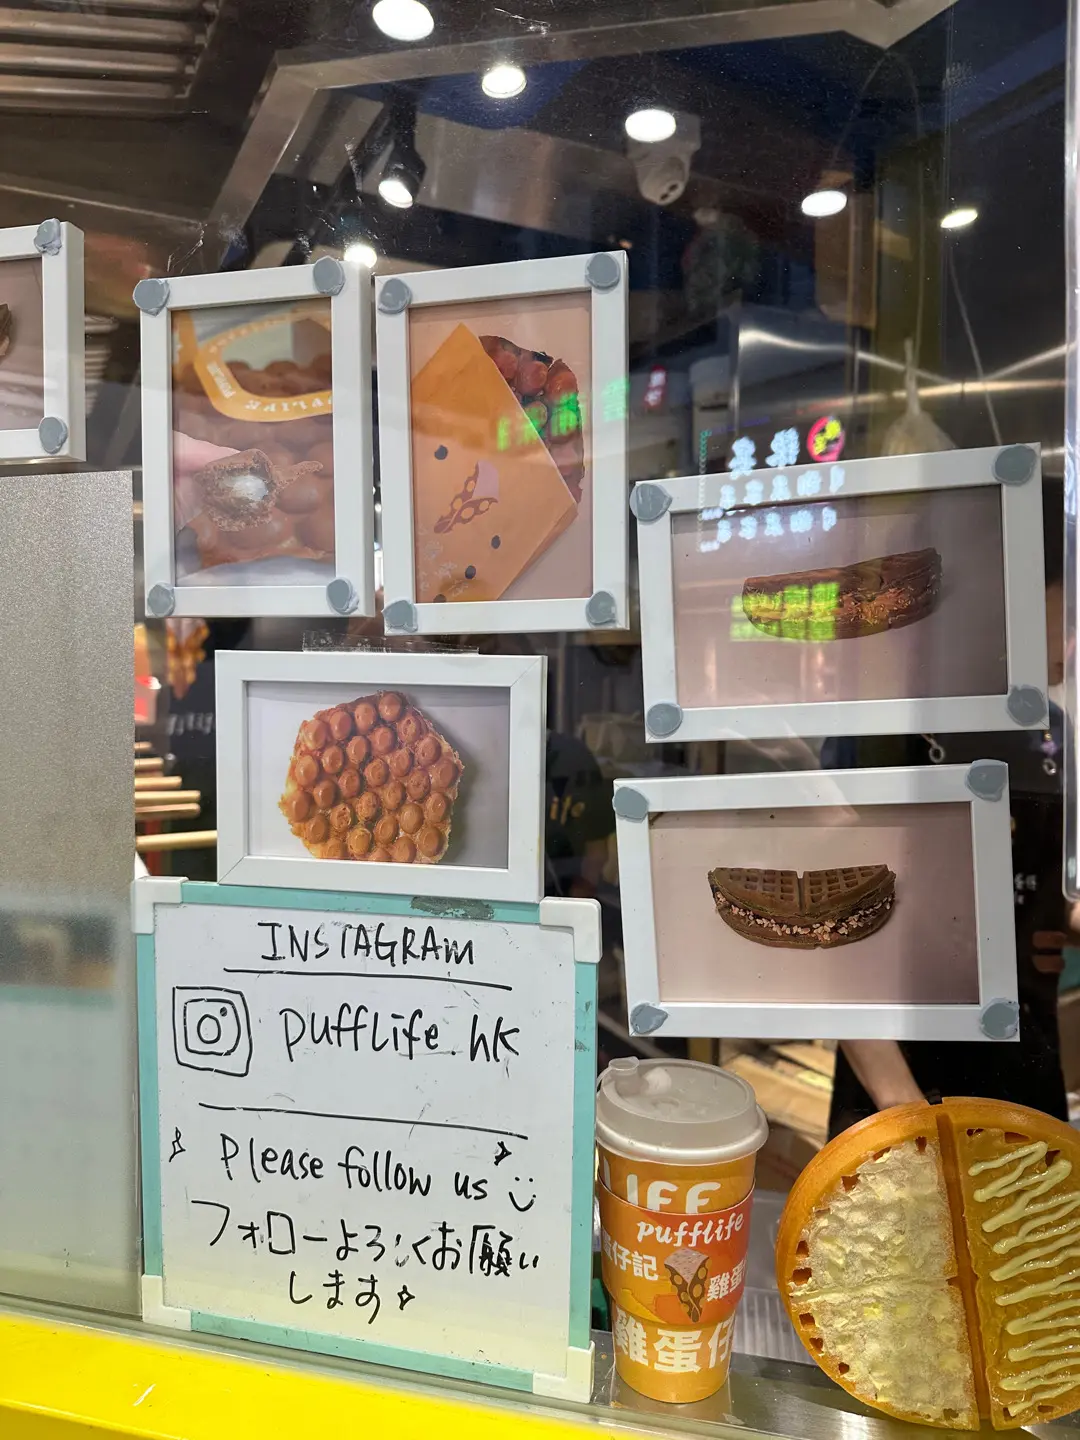 PUFFLIFE
INSTAGRAM
pufflife.hk
Please follow us
フォローよろしくお願い
します
LIFE
pufflife
蛋仔記
雞蛋
雞蛋仔